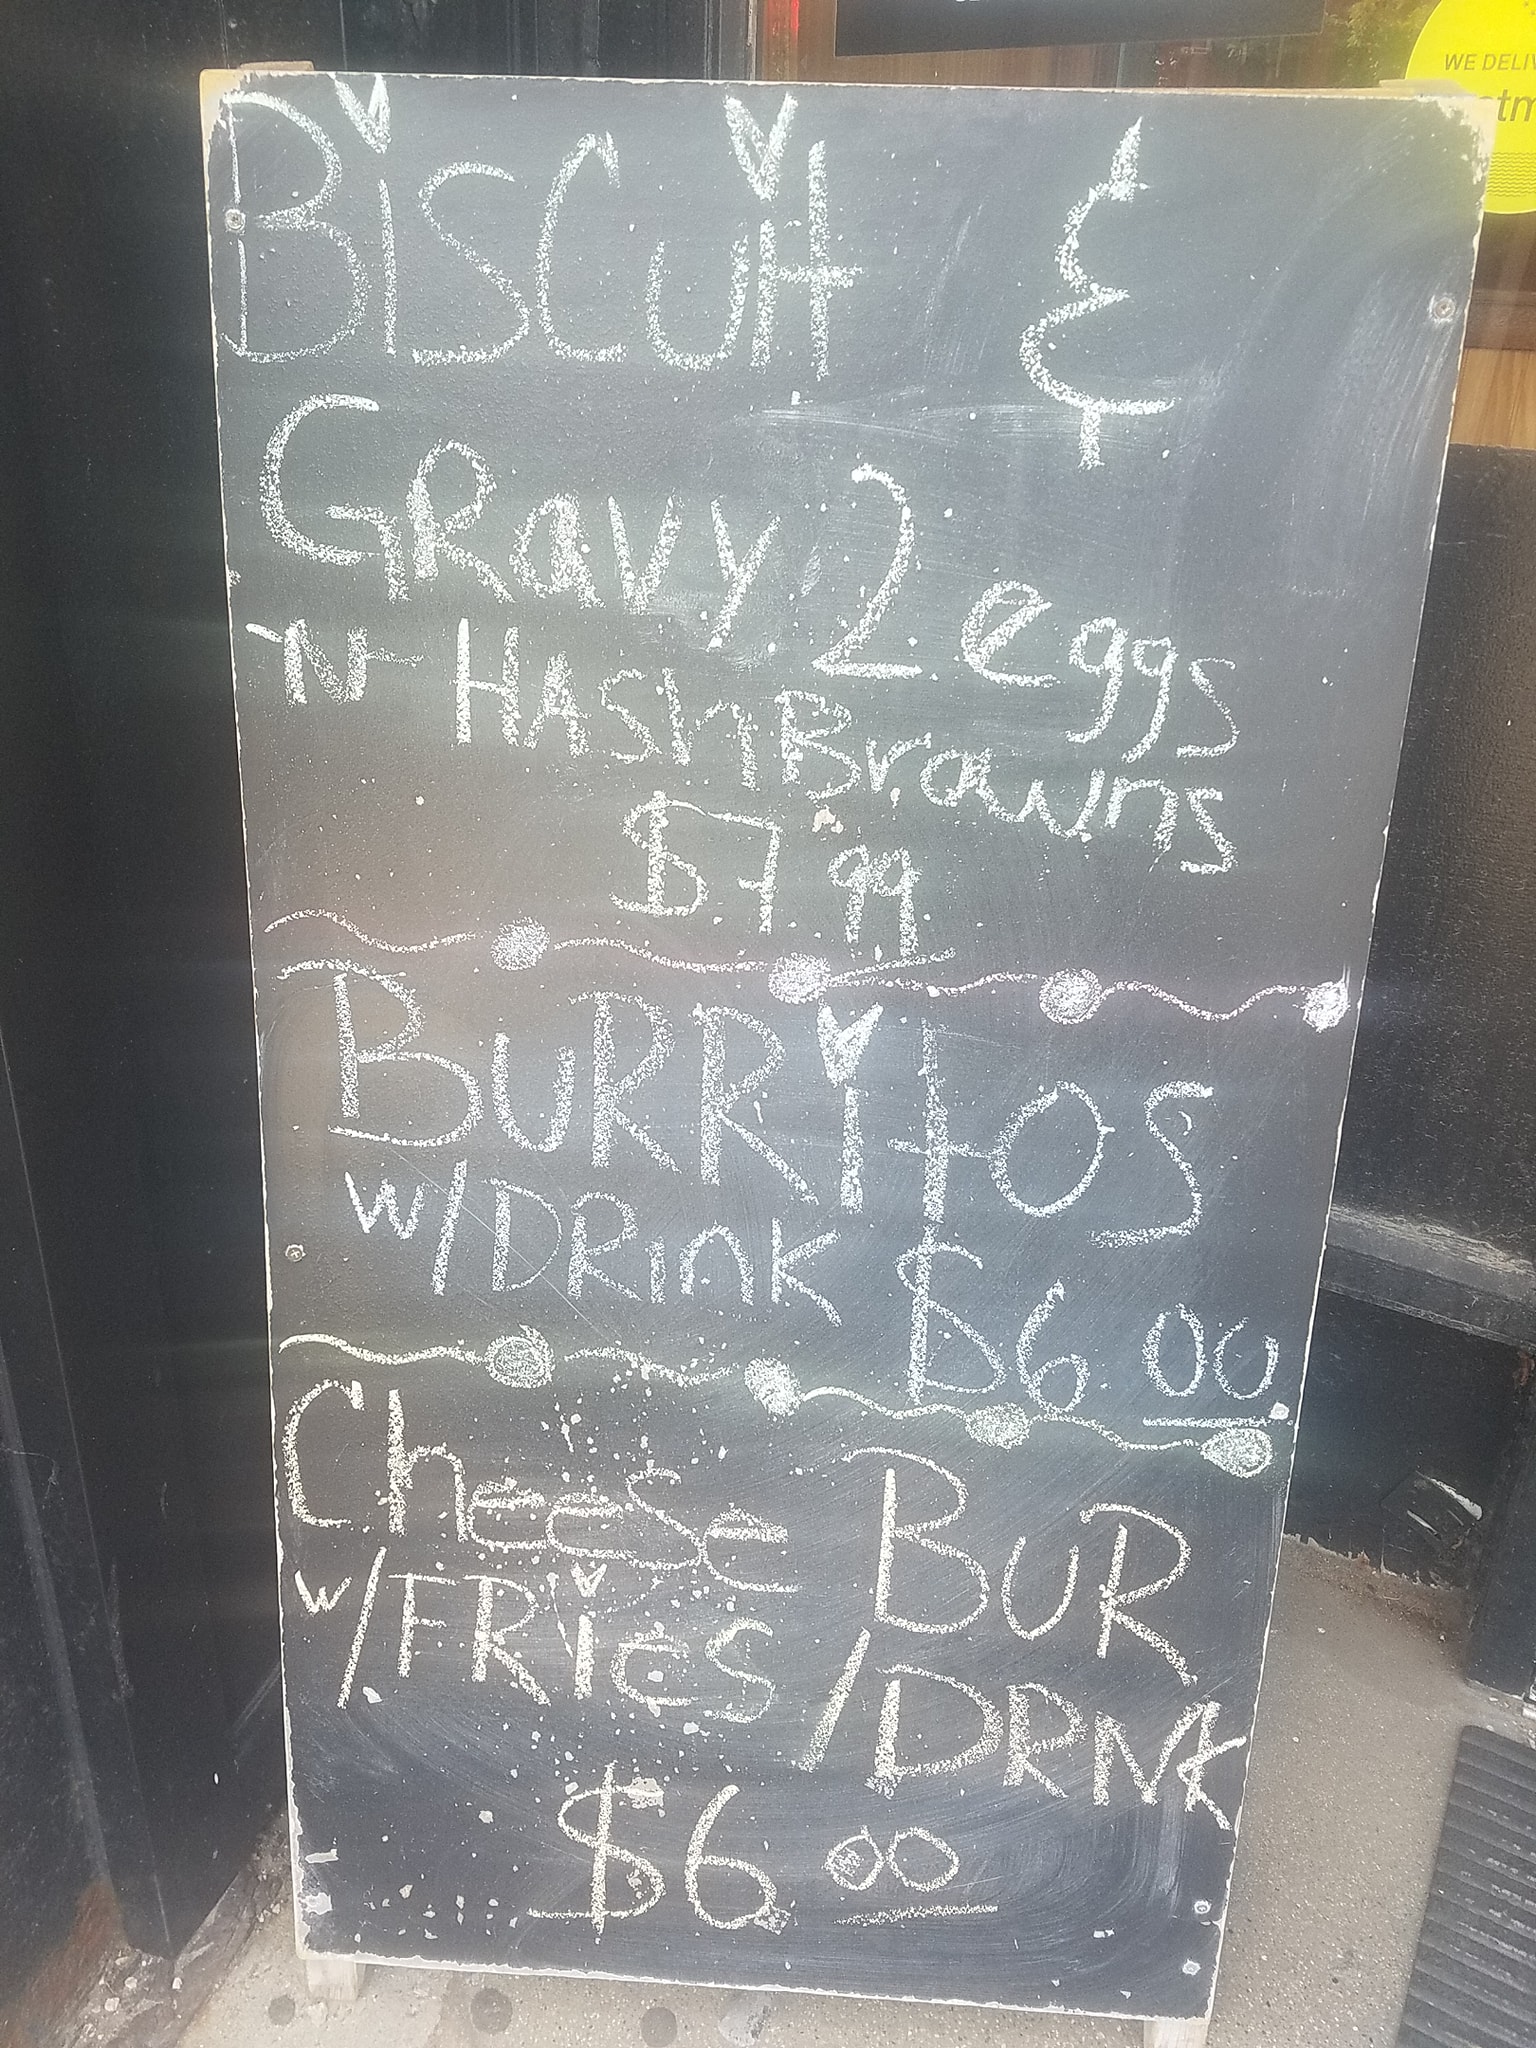 WE DELIV
tm
BiSCUit &
GRavy 2 eggs
'N HAShBrowns
$7.99
BURRitOS
w/DRink $6.00
CheeSe BUR
w/FRies /DRNK
$6.00